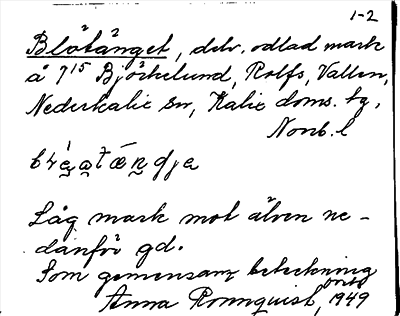 1-2
Blötänget, delv. odlad mark
å 7¹⁵ Björkelund, Rolfs, Vallen,
Nederkalix sn, Kalix doms. tg,
Norrb. l
Låg mark mot älven ne-
danför gd.
Som gemensam beteckning
Anna Rönnquist, 1949